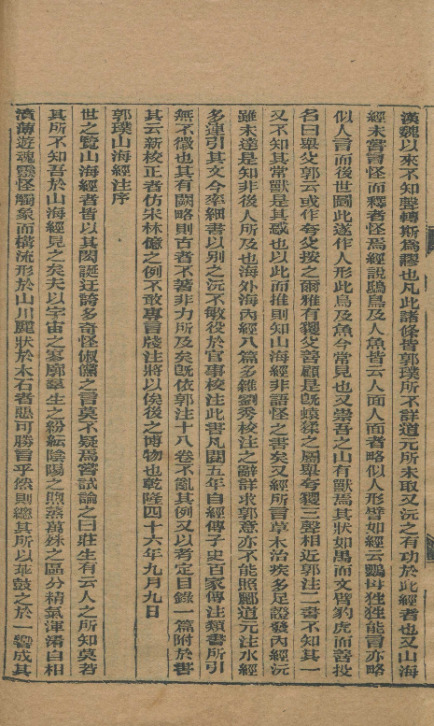 漢魏以來不知聲轉斯為謬也凡此諸條皆郭璞所不詳道元所未取又沅之有功於此經者也又山海
經未嘗言怪而釋者怪焉經說鴟鳥及人魚皆云人面人面者略似人形譬如經云鸚母狌狌能言亦略
似人言而後世圖此遂作人形此鳥及魚今常見也又崇吾之山有獸焉其狀如禺而文臂豹虎而善投
名曰舉父郭云或作夸父按之爾雅有玃父善顧是旣猿猱之屬舉夸玃三聲相近郭注二書不知其一
又不知其常獸是其惑也以此而推則知山海經非語怪之書矣又經所言草木治疾多足證發內經沅
雖未達是知非後人所及也海外海內經八篇多雜劉秀校注之辭詳求郭意亦不能照酈道元注水經
多連引其文今率細書以別之沅不敏役於官事校注此書凡閱五年自經傳子史百家傳注類書所引
無不徵也其有闕略則古者不著非力所及矣旣依郭注十八卷不亂其例又以考定目錄一篇附於書
其云新校正者仿宋林億之例不敢專言牋注將以俟後之博物也乾隆四十六年九月九日
郭璞山海經注序
世之覽山海經者皆以其閎誕迂誇多奇怪俶儻之言莫不疑焉嘗試論之曰莊生有云人之所知莫若
其所不知吾於山海經見之矣夫以宇宙之寥廓羣生之紛紜陰陽之煦蒸萬殊之區分精氣渾淆自相
濆薄遊魂靈怪觸象而構流形於山川麗狀於木石者惡可勝言乎然則總其所以乖鼓之於一響成其